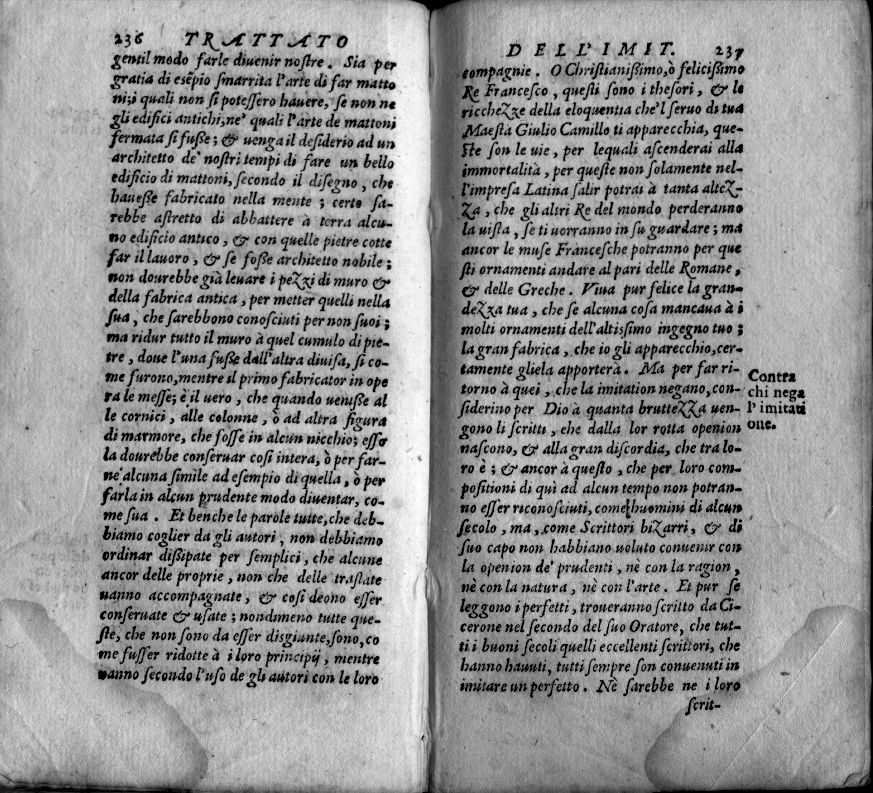 236 TRATTATO
gentil modo farle diuenir nostre. Sia per
gratia di esẽpio smarrita l'arte di far matto
ni; i quali non si potessero hauere, se non ne
gli edifici antichi, ne' quali l'arte de mattoni
fermata si fusse; & uenga il desiderio ad un
architetto de' nostri tempi di fare un bello
edificio di mattoni, secondo il disegno, che
hauesse fabricato nella mente; certo sa-
rebbe astretto di abbattere à terra alcu-
no edificio antico, & con quelle pietre cotte
far il lauoro, & se fosse architetto nobile;
non dourebbe già leuare i pezzi di muro &
della fabrica antica, per metter quelli nella
sua, che sarebbono conosciuti per non suoi;
ma ridur tutto il muro à quel cumulo di pie-
tre, doue l'una fusse dall'altra diuisa, si co-
me furono, mentre il primo fabricator in ope
ra le messe; è il uero, che quando uenisse al
le cornici, alle colonne, ò ad altra figura
di marmore, che fosse in alcun nicchio; esso
la dourebbe conseruar cosi intera, ò per far-
ne alcuna simile ad esempio di quella, ò per
farla in alcun prudente modo diuentar, co-
me sua. Et benche le parole tutte, che deb-
biamo coglier da gli autori, non debbiamo
ordinar dissipate per semplici, che alcune
ancor delle proprie, non che delle traslate
uanno accompagnate, & cosi deono esser
conseruate & usate; nondimeno tutte que-
ste, che non sono da esser disgiunte, sono, co
me fusser ridotte à i loro principij, mentre
uanno secondo l'uso de gli autori con le loro
DELL'IMIT. 237
compagnie. O Christianissimo, ò felicissimo
Re Francesco, questi sono i thesori, & le
ricchezze della eloquentia che'l seruo di tua
Maestà Giulio Camillo ti apparecchia, que-
ste son le uie, per lequali ascenderai alla
immortalità, per queste non solamente nel-
l'impresa Latina salir potrai à tanta altez-
za, che gli altri Re del mondo perderanno
la uista, se ti uorranno in su guardare; ma
ancor le muse Francesche potranno per que
sti ornamenti andare al pari delle Romane,
& delle Greche. Viua pur felice la gran-
dezza tua, che se alcuna cosa mancaua à i
molti ornamenti dell'altissimo ingegno tuo;
la gran fabrica, che io gli apparecchio, cer-
tamente gliela apporterà. Ma per far ri-
torno à quei, che la imitation negano, con-
siderino per Dio à quanta bruttezza uen-
gono li scritti, che dalla lor rotta openion
nascono, & alla gran discordia, che tra lo-
ro è; & ancor à questo, che per loro com-
positioni di quì ad alcun tempo non potran-
no esser riconosciuti, come huomini di alcun
secolo, ma, come Scrittori bizarri, & di
suo capo non habbiano uoluto conuenir con
la openion de' prudenti, nè con la ragion,
nè con la natura, nè con l'arte. Et pur se
leggono i perfetti, troueranno scritto da Ci-
cerone nel secondo del suo Oratore, che tut-
ti i buoni secoli quelli eccellenti scrittori, che
hanno hauuti, tutti sempre son conuenuti in
imitare un perfetto. Nè sarebbe ne i loro
scrit-
Contra
chi nega
l'imitati
one.